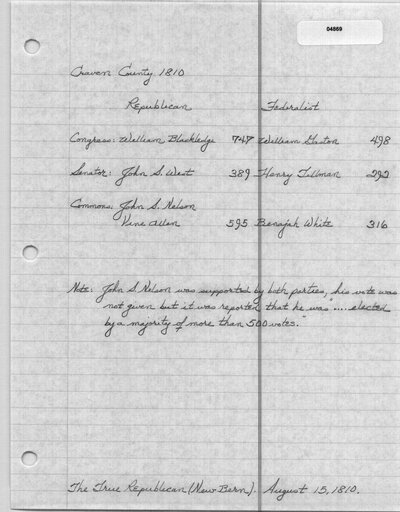 04869
Craven County 1810
Republican Federalist
Congress: William Blackledge 747 William Gaston 498
Senator: John S. West 389 Henry Tillman 292
Commons: John S. Nelson
Vine Allen 595 Benajah White 316
Note: John S. Nelson was supported by both parties, his vote was
not given but it was reported that he was "....elected
by a majority of more than 500 votes."
The True Republican (New Bern). August 15, 1810.